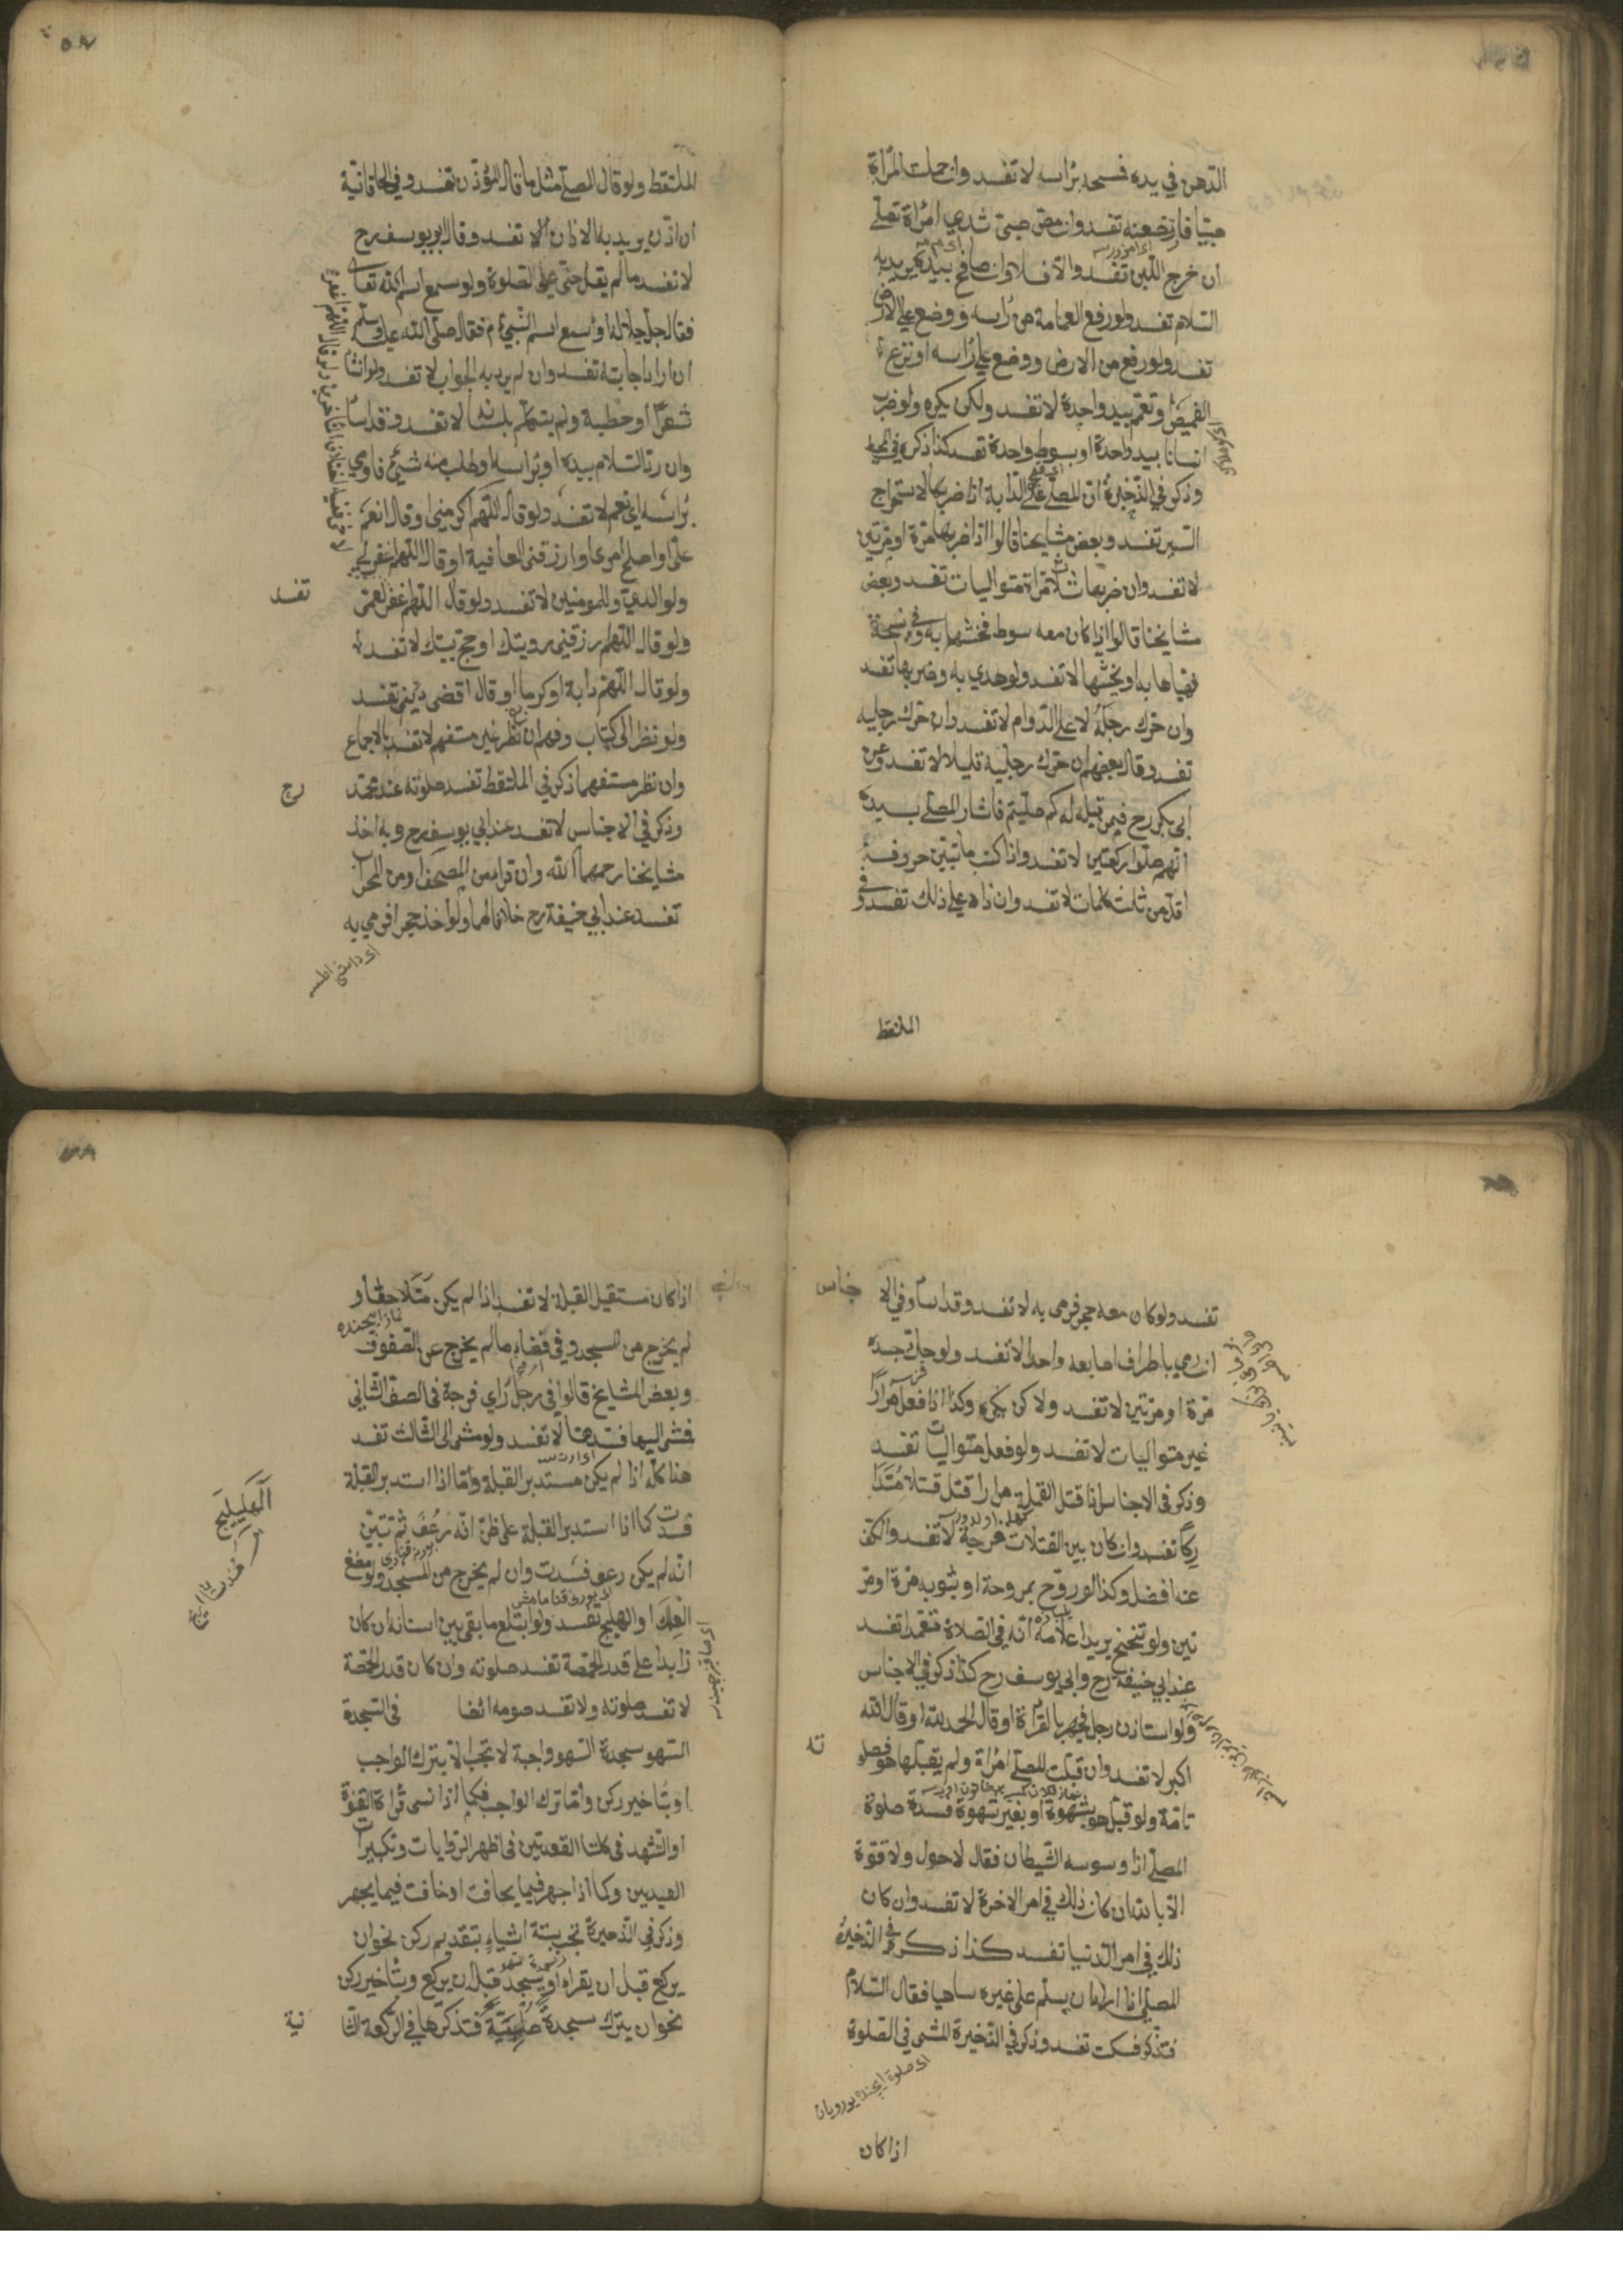 الدهن في يده فمسحه براسه لا تفسد وان حملت المراة
صبيا فارتضعته تفسد وان مص صبي ثدي امراة تصلي
ان خرج اللبن تفسد والا فلا وان صافح بيده يريد به
السلام تفسد ولو رفع العمامة من راسه ووضع علي الارض
تفسد ولو رفع من الارض ووضع علي راسه او نزع
القميص او تعمم بيد واحدة لا تفسد ولكن يكره ولو ضرب
انسانا بيد واحدة او بسوط واحدة تفسد كذا ذكره في المحيط
وذكر في الذخيرة ان المصلي علي الدابة اذا ضربها لاستخراج
السير تفسد وبعض مشايخنا قالوا اذا ضربها مرة او مرتين
لا تفسد وان ضربها ثلاث مراة متواليات تفسد وبعض
مشايخنا قالوا اذا كان معه سوط فخشها به وفي نسخة
فهياها به او بخشها لا تفسد ولو هدي به وضربها تفسد
وان حرك رجله لا علي الدوام لا تفسد وان حرك رجليه
تفسد وقال بعضهم ان حرك رجليه قليلا لا تفسد وعن
ابي بكر رح فيمن قيل له كم صليتم فاشار المصلي بيده
انهم صلوا ركعتين لا تفسد واذا كتب ما تبين حروفه
اقل من ثلث كلمات لا تفسد وان زاد علي ذلك تفسد وفي
الملتقط
الملتقط ولو قال المصلي مثل ما قال المؤذن تفسد وفي الخاقانية
ان اذن يريد به الاذان تفسد وقال ابو يوسف رح
لا تفسد ما لم يقل حي علي الصلوة ولو سمع اسم الله تعا
فقال جل جلاله او سمع اسم النبي م فقال صلي الله عليه وسلم
ان اراد اجابته تفسد وان لم يرد به الجواب لا تفسد ولو انشا
شعرا او خطبة ولم يتكلم بلسانه لا تفسد وقد اسا
وان رد السلام بيده او براسه او طلب منه شيئ فاومي
براسه اي نعم لا تفسد ولو قال اللهم اكرمني او قال انعم
علي او اصلح امري او ارزقني العافية او قال اللهم اغفر لي
ولوالدي وللمومنين لا تفسد ولو قال اللهم اغفر لعمي
تفسد
ولو قال اللهم ارزقني رويتك او حج بيتك لا تفسد
ولو قال اللهم دابة او كرما او قال اقض ديني تفسد
ولو نظر الي كتاب وفهم ان نظر غير مستفهم لا تفسد بالاجماع
وان نظر مستفهما ذكر في الملتقط تفسد صلوته عند محمد
رح
وذكر في الاجناس لا تفسد عند ابي يوسف رح وبه اخذ
مشايخنا رحمهم الله وان قرا من المصحف او من المحراب
تفسد عند ابي حنيفة رح خلافا لهما ولو اخذ حجرا فرمي به
تفسد ولو كان معه حجر فرمي به لا تفسد وقد اسا وفي الا
جناس
ان رمي باطراف اصابعه واحدا لا تفسد ولو حك جسده
مرة او مرتين لا تفسد ولاكن يكره وكذا اذا فعل مرارا
غير متواليات لا تفسد ولو فعل متواليات تفسد
وذكر في الاجناس اذا قتل القملة مرارا قتل قتلا متدا
ركا تفسد وان كان بين القتلات فرجة لا تفسد والكف
عنه افضل وكذا لو روح بمروحة او بثوبه مرة او مر
تين ولو تنحنح يريد اعلامه انه في الصلاة متعمدا تفسد
عند ابي حنيفة رح وابي يوسف رح كذا ذكر في الاجناس
ولو استاذن رجل فجهر بالقراة او قال الحمد لله او قال الله
اكبر لا تفسد وان قبلت المصلي امراة ولم يقبلها هو فصلو
ته
تامة ولو قبل هو بشهوة او بغير شهوة فسدة صلوة
المصلي اذا وسوسه الشيطان فقال لا حول ولا قوة
الا بالله ان كان ذلك في امر الاخرة لا تفسد وان كان
ذلك في امر الدنيا تفسد كذا ذكر في الذخيرة
المصلي اذا اراد ان يسلم علي غيره ساهيا فقال السلام
فتذكر فسكت تفسد وذكر في الذخيرة المشي في الصلوة
اذا كان
اذا كان مستقبل القبلة لا تفسد اذا لم يكن متلاحقا و
لم يخرج من المسجد وفي فضاء ما لم يخرج عن الصفوف
وبعض المشايخ قالوا في رجل راي فرجة في الصف الثاني
فمشي اليها فسدها لا تفسد ولو مشي الي الثالث تفسد
هذا كله اذا لم يكن مستدبر القبلة واما اذا استدبر القبلة
فسدت كما اذا استدبر القبلة علي ظن انه رعف ثم تبين
انه لم يكن رعف فسدت وان لم يخرج من المسجد ولو مضغ
العلك او الهليج تفسد ولو ابتلع ما بقي بين اسنانه ان كان
زايدا علي قدر الحمصة تفسد صلوته وان كان قدر الحمصة
لا تفسد صلوته ولا تفسد صومه ايضا في السجدة
السهو سجدة السهو واجبة لا تجب الا بترك الواجب
او بتاخير ركن واما ترك الواجب فكما اذا نسي قراة القنوة
او التشهد في كلتا القعدتين في اظهر الروايات وتكبيرات
العيدين وكما اذا جهر فيما يخافت او خافت فيما يجهر
وذكر في الذخيرة تجب بستة اشياء بتقديم ركن نحو ان
يركع قبل ان يقراء او يسجد قبل ان يركع وبتاخير ركن
نحو ان يترك سجدة صلبية فتذكرها في الركعة الثا
نية
الهليلج